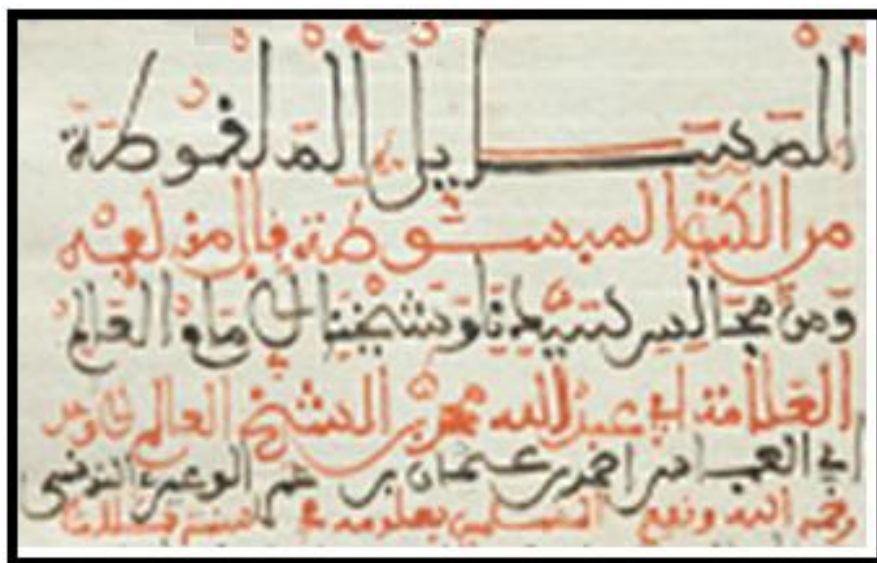 المسايل الملقوطة
من الكتب المبسوطة قال مؤلفه
ومن مجالس سيدنا وشيخنا الامام العالم
العلامة ابي عبد الله محمد بن الشيخ العالم
ابي العباس احمد بن عثمان بن عمر التونسي
رحمه الله ونفع المسلمين بعلومه